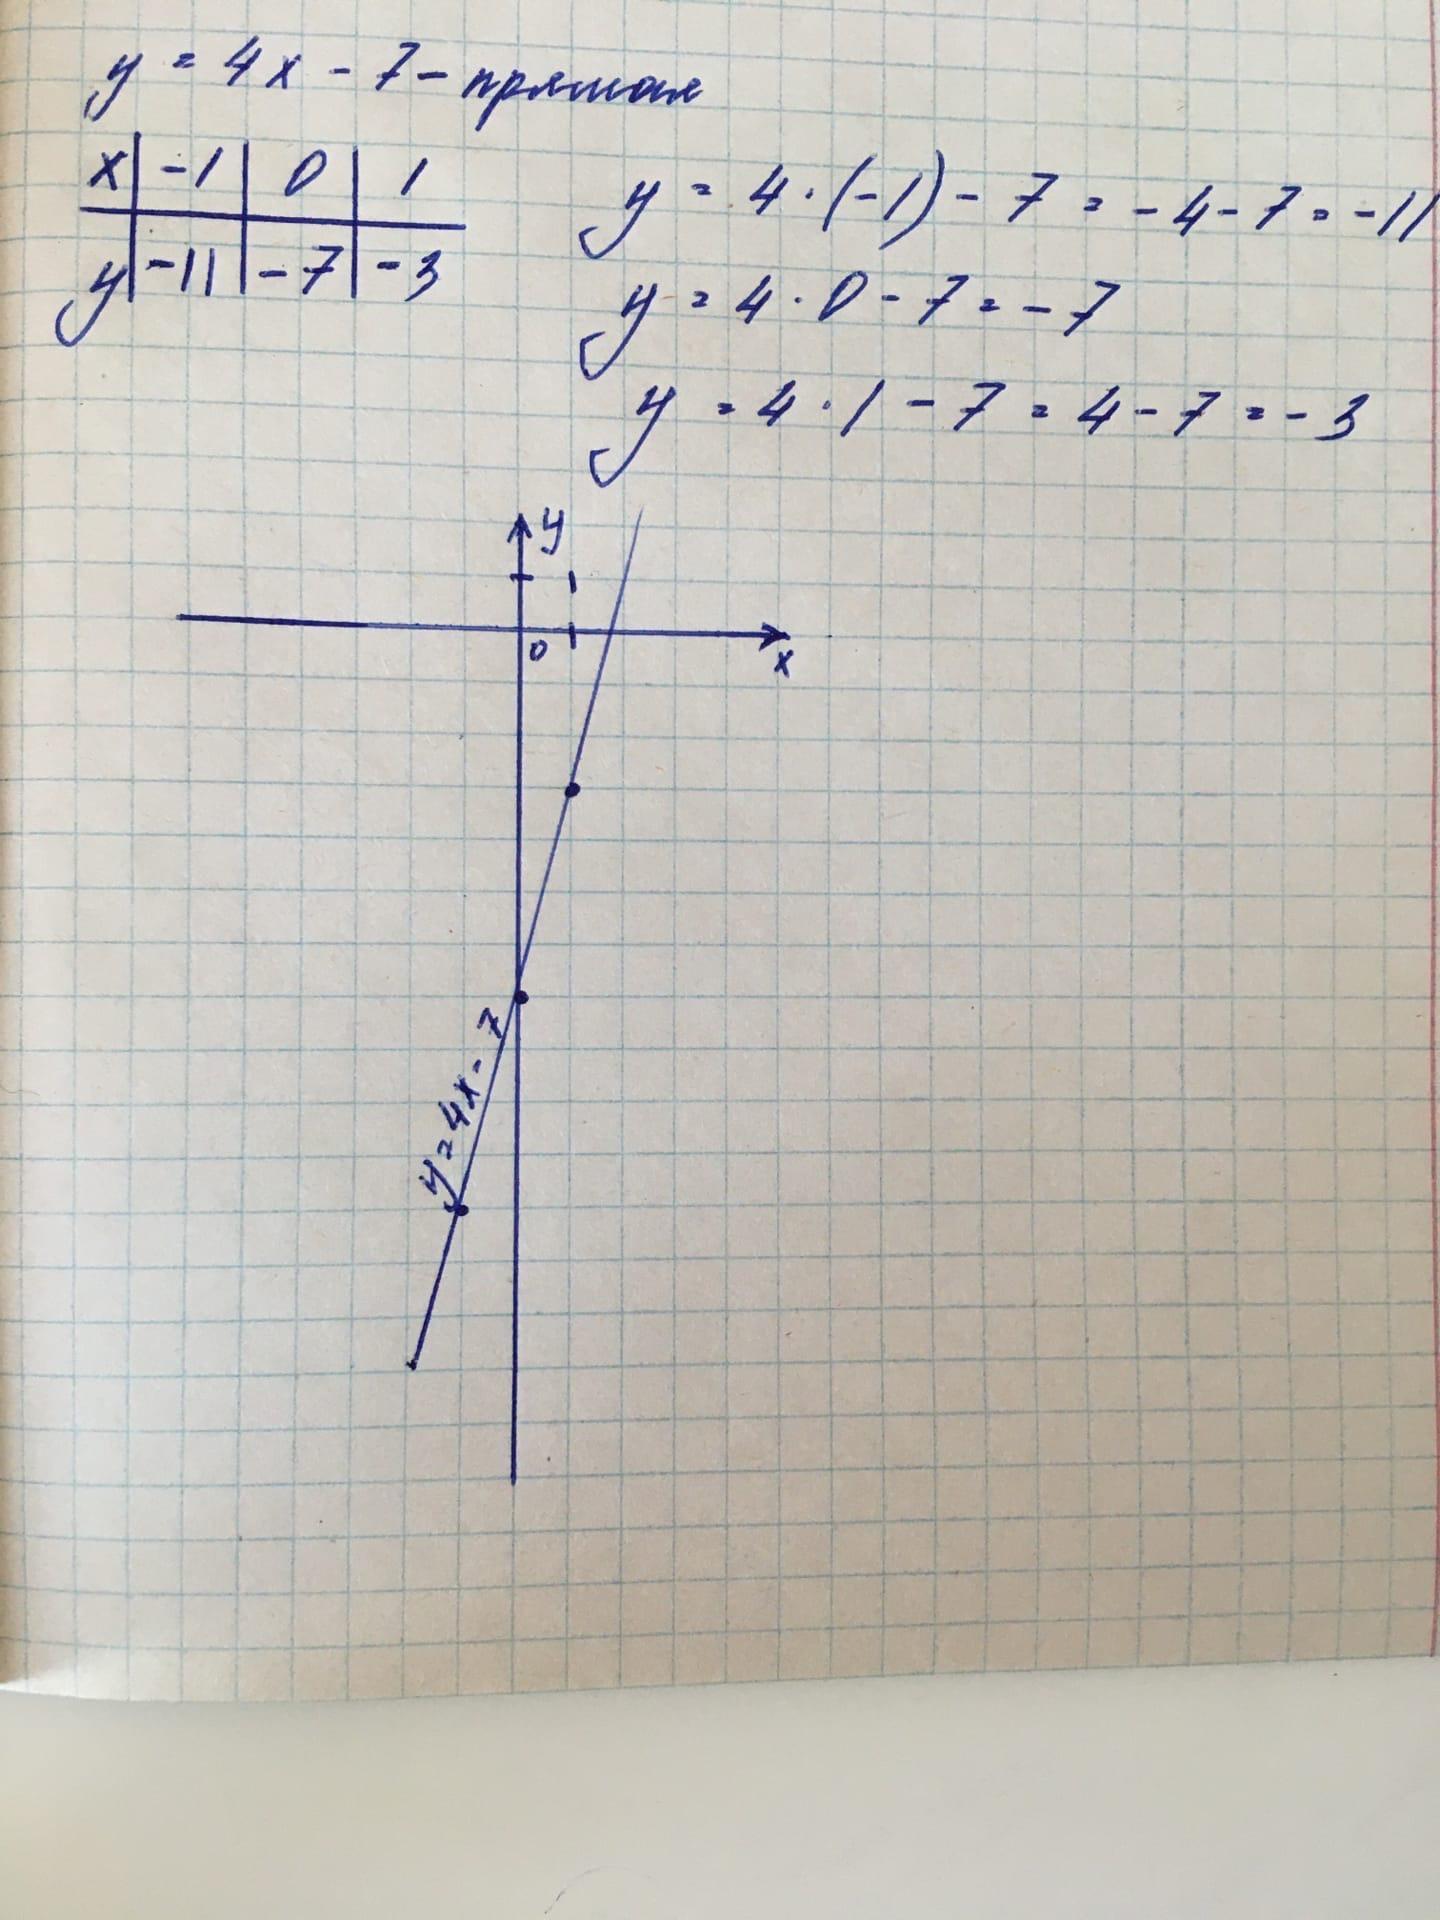 y = 4x - 7 - прямая
x | -1 | 0 | 1
y | -11 | -7 | -3
y = 4 · (-1) - 7 = -4 - 7 = -11
y = 4 · 0 - 7 = -7
y = 4 · 1 - 7 = 4 - 7 = -3
y
0
x
y = 4x - 7